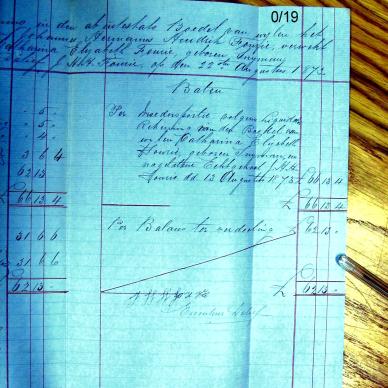 0/19
in den ab intestato Boedel van wylen het
Johannes Hermanus Hendrik Fourie, verwekt
Catharina Elizabeth Fourie, geboren
J. H. H. Fourie, op den 22sten Augustus 1872
Baten
5
5
4
Per Moedersportie, volgens Liquidatie
Rekening van den Boedel van
wylen Catharina Elizabeth
3 6 4
Fourie, geboren
62 13
nagelatene Echtgenoot J. H. H.
Fourie dd. 13 Augustus 1873 £ 66 13 4
66 13 4 £ 66 13 4
31 6 6 Per Balans ter verdeeling £ 62 13 -
31 6 6
62 13 - £ 62 13 -
Executeur Datief